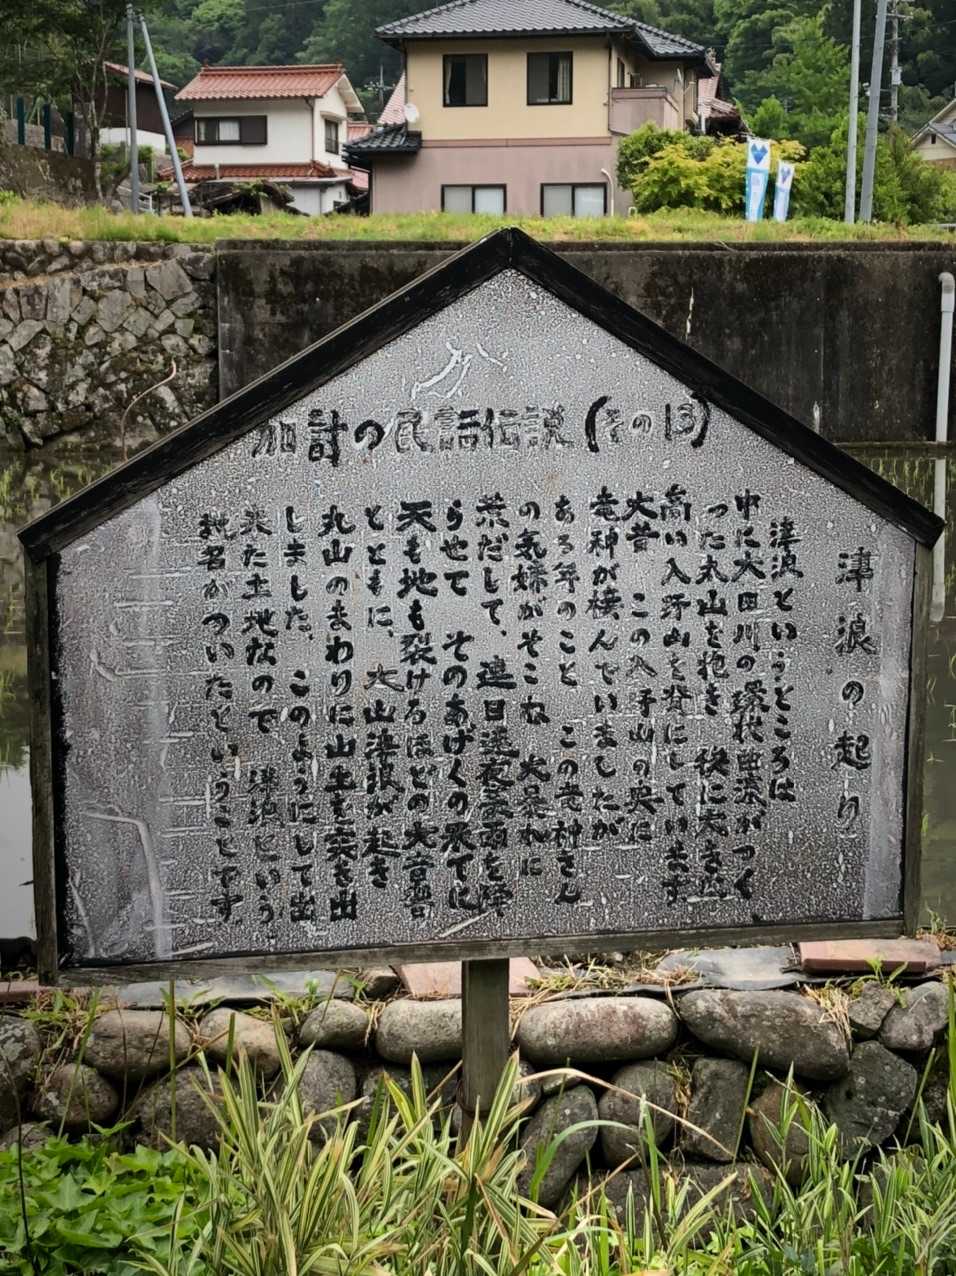 加計の民話伝説(その四)
津浪の起り
津浪というところは
中に太田川の環状曲流がつく
った丸山を抱き 後に大きな
高い入汗山を背にしています
大昔 この入汗山の奥に
竜神が棲んでいましたが
ある年のこと この竜神さん
の気嫌がそこね 大暴れに
荒だして、連日連夜豪雨を降
らせて そのあげくの果てに
天も地も裂けるほどの大音響
とともに、大山津浪が起き
丸山のまわりに山土を突き出
しました、このようにして出
来た土地なので 津浪という
地名がついたということです